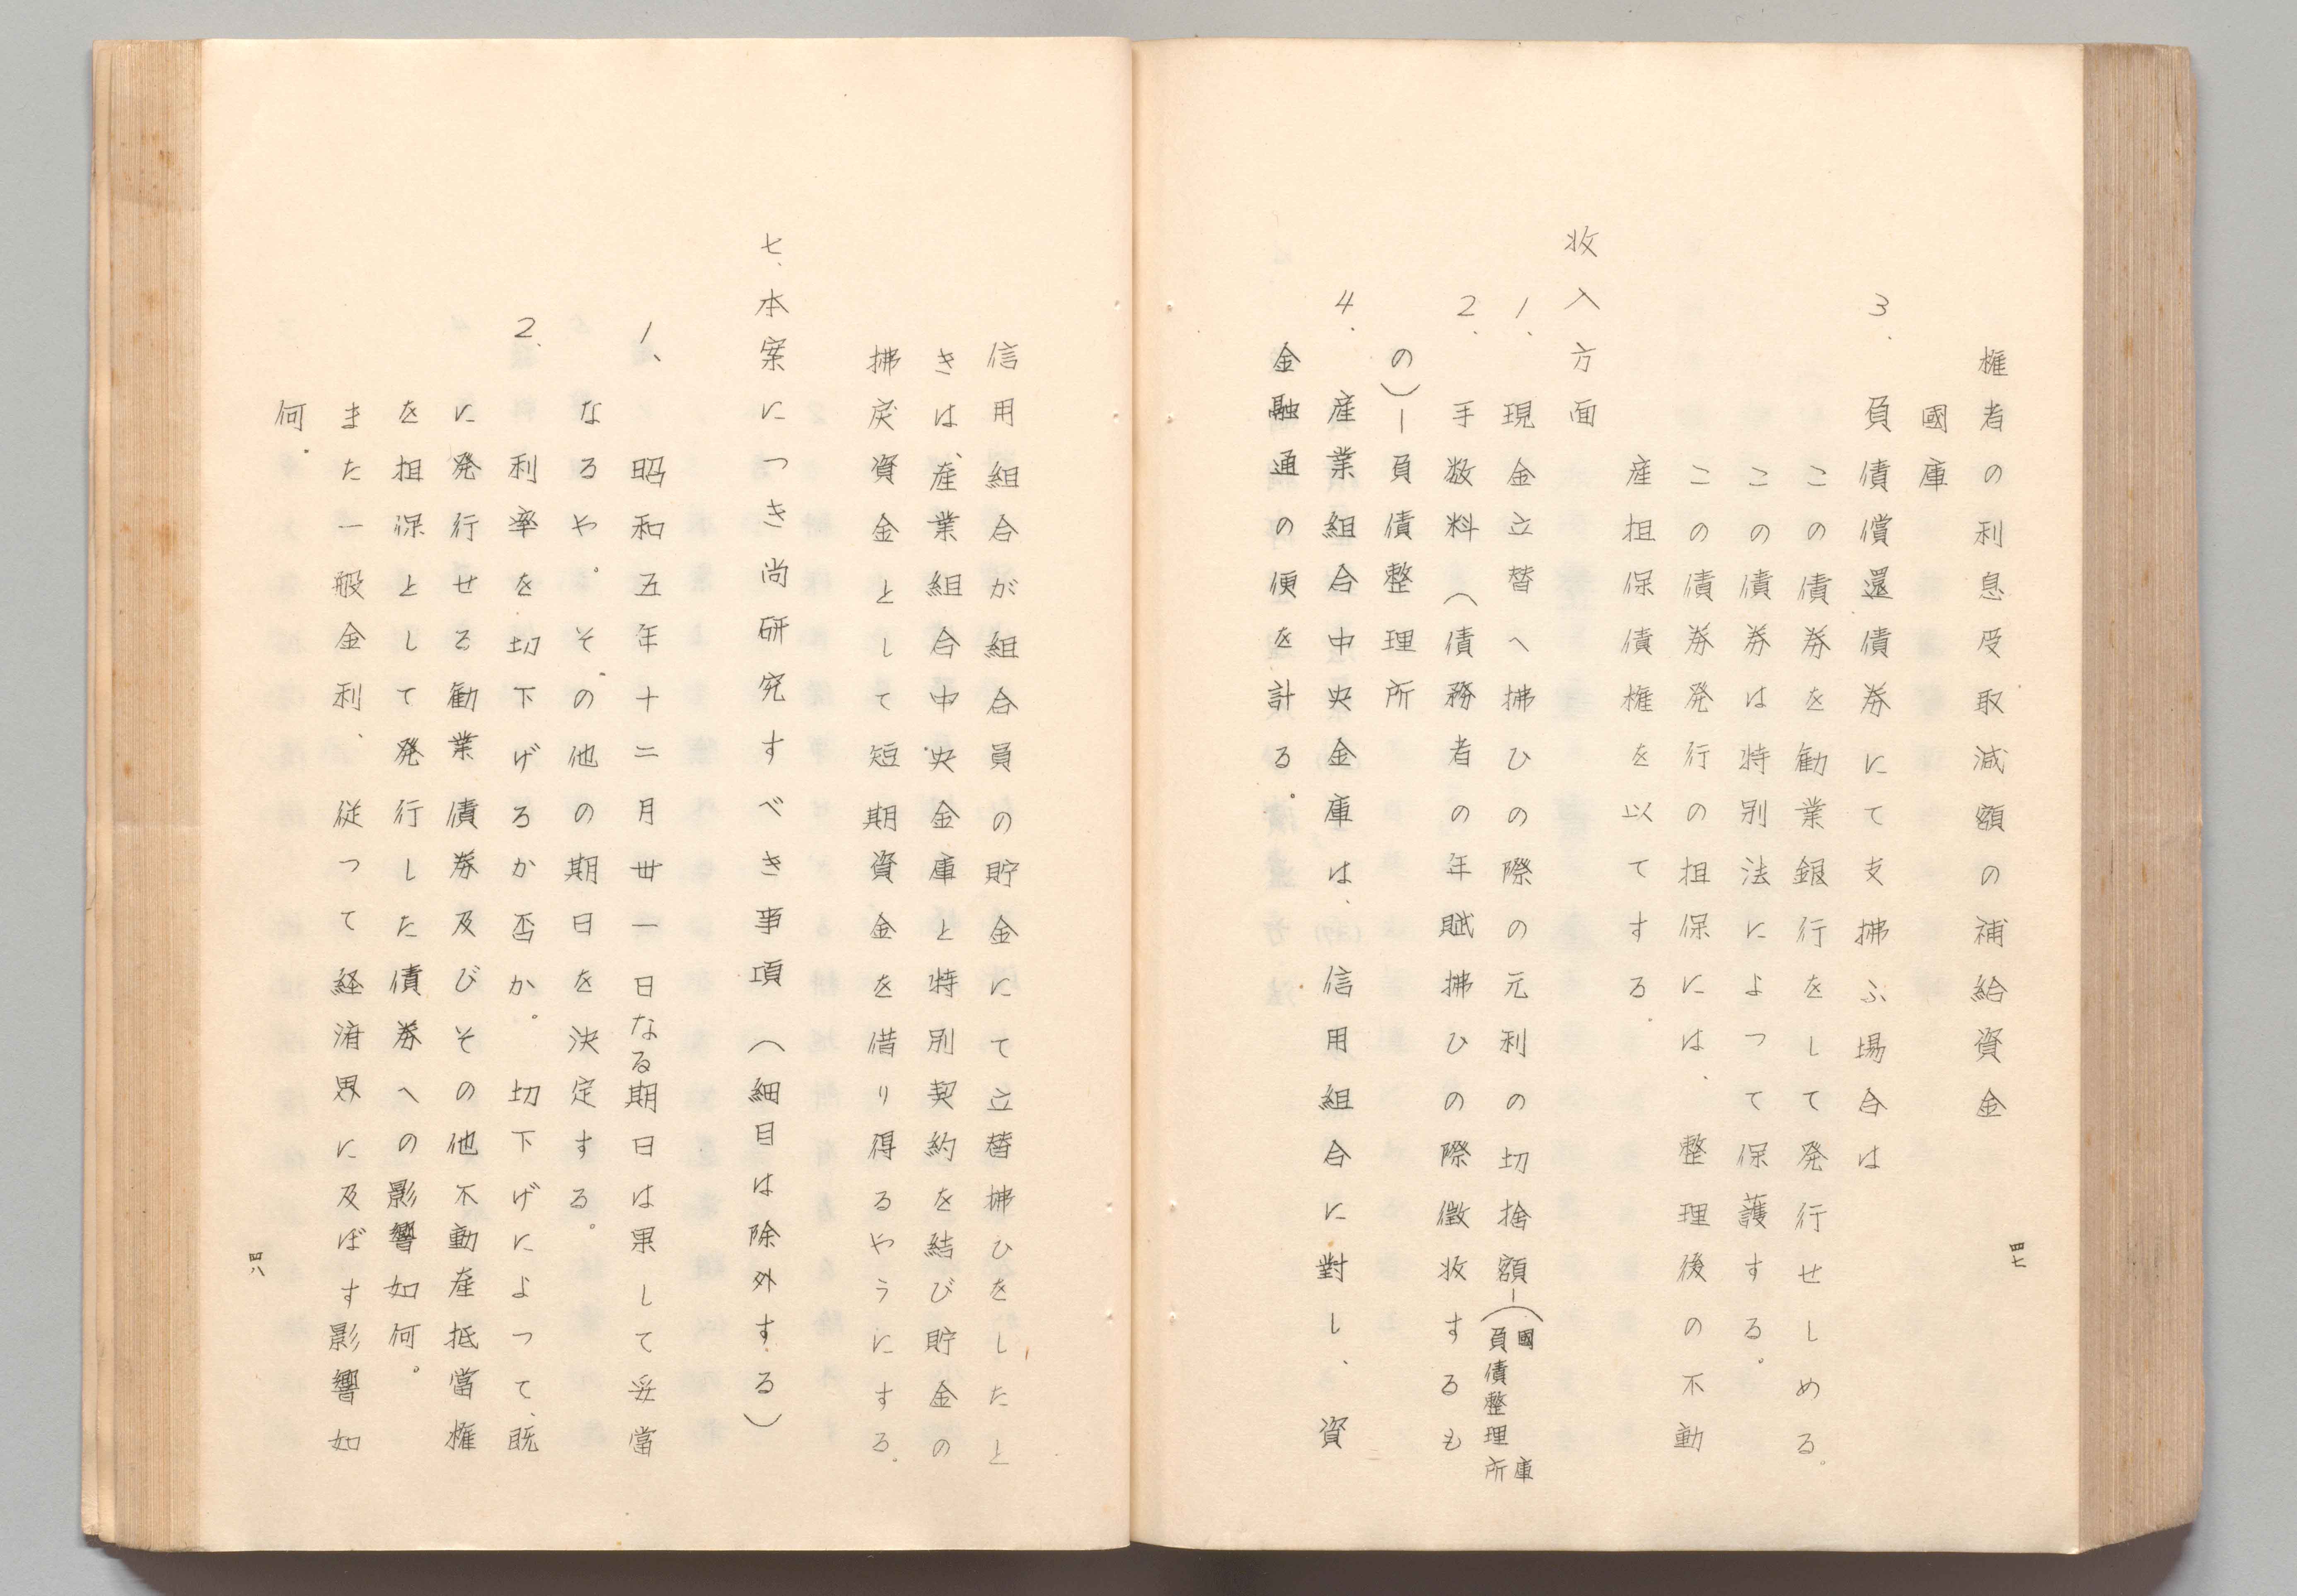 権者の利息受取減額の補給資金
國庫
3. 負債償還債券にて支拂ふ場合は
この債券を勧業銀行をして発行せしめる。
この債券は特別法によって保護する。
この債券発行の担保には、整理後の不動
産担保債権を以てする.
収入方面
1. 現金立替へ拂ひの際の元利の切捨額―(國庫
負債整理所
2. 手数料(債務者の年賦拂ひの際徴收するも
の)―負債整理所
4. 産業組合中央金庫は、信用組合に對し、資
金融通の便を計る。
四七
信用組合が組合員の貯金にて立替拂ひをしたと
きは、産業組合中央金庫と特別契約を結び貯金の
拂戻資金として短期資金を借り得るやうにする.
七、本案につき尚研究すべき事項(細目は除外する)
1、昭和五年十二月卅一日なる期日は果して妥當
なるや。その他の期日を決定する。
2. 利率を切下げるか否か。切下げによって、既
に発行せる勧業債券及びその他不動産抵當権
を担保として発行した債券への影響如何。
また一般金利、従って経済界に及ぼす影響如
何.
四八